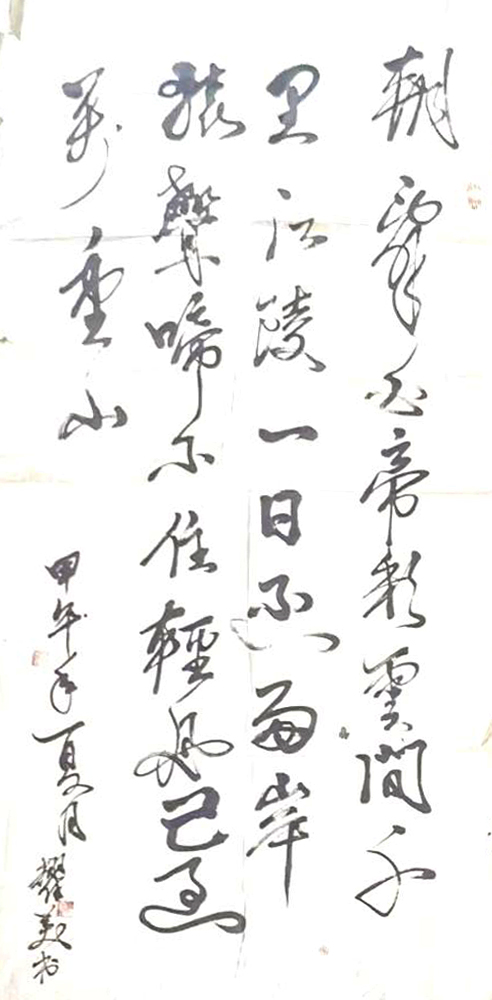 朝辭白帝彩雲間千
里江陵一日還兩岸
猿聲啼不住輕舟已過
萬重山
甲午年夏月耀美书